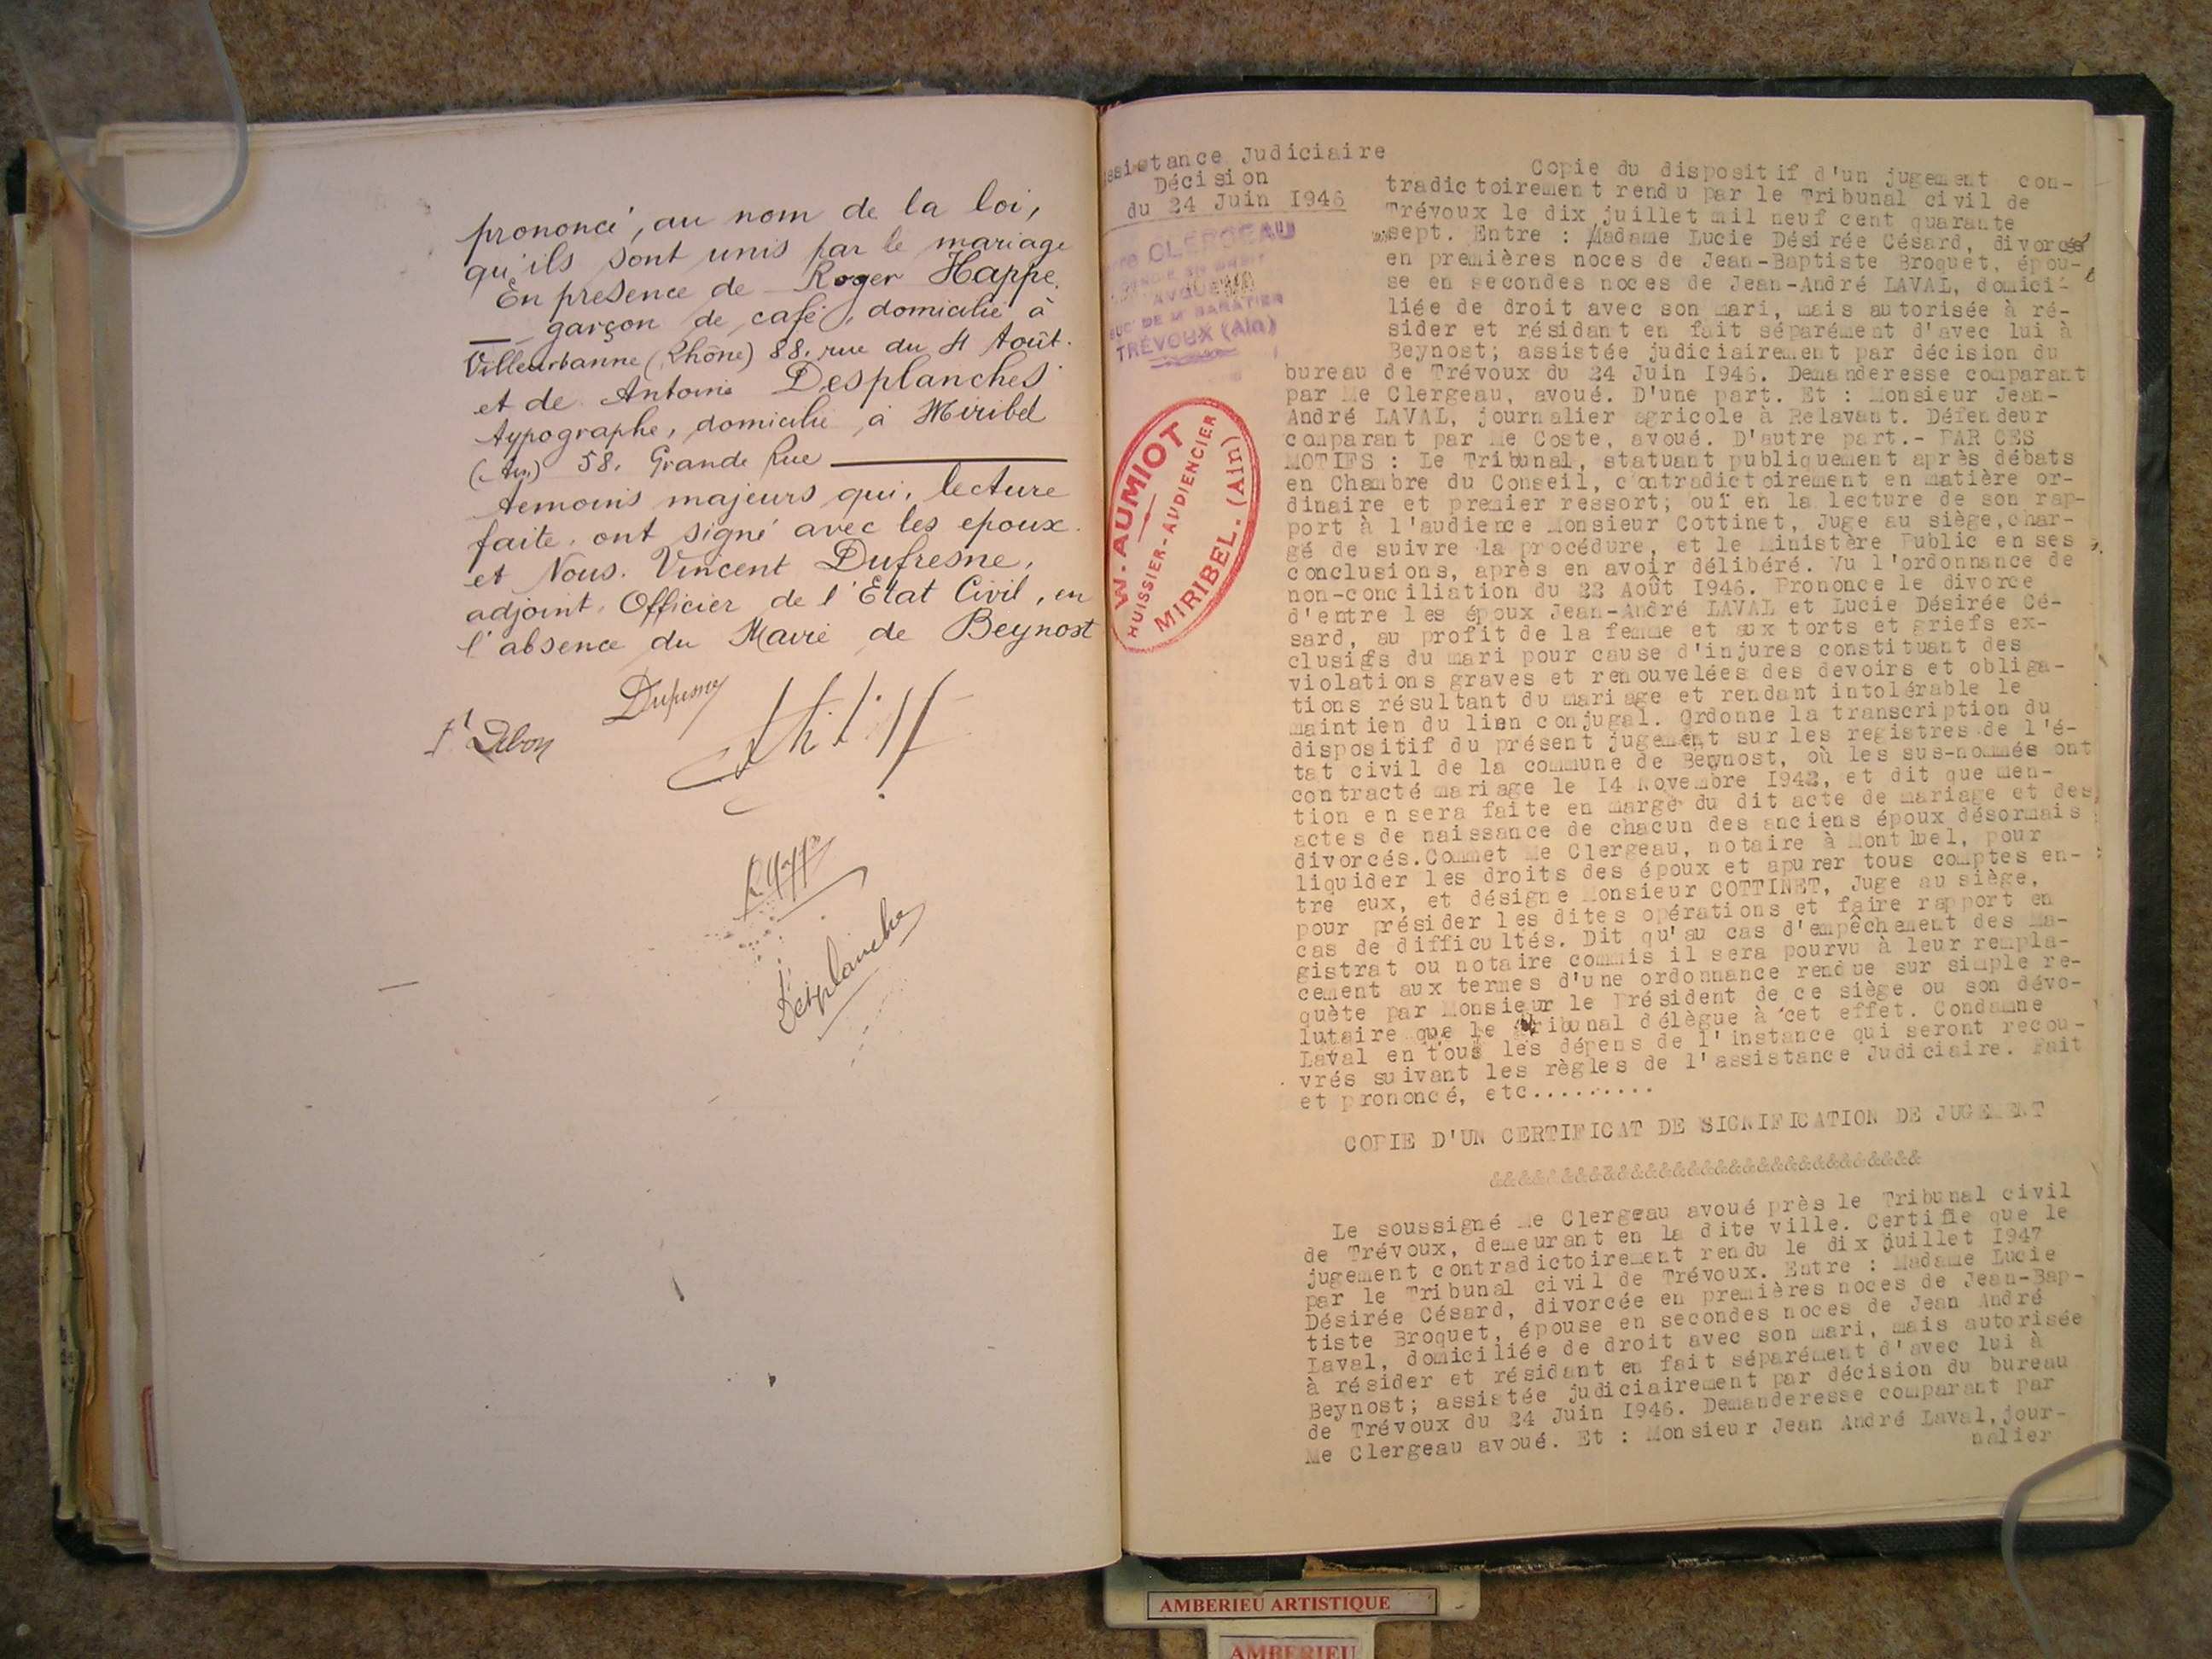 prononcé, au nom de la loi,
qu'ils sont unis par le mariage
En presence de Roger Happe,
garçon de café, domicilié à
Villeurbanne (Rhône) 88, rue du 4 Août.
et de Antoine Desplanches
typographe, domicilié à Miribel
(Ain) 58, Grande Rue
temoins majeurs qui, lecture
faite, ont signé avec les epoux
et Nous. Vincent Dufresne,
adjoint, Officier de l'Etat Civil, en
l'absence du Maire de Beynost
Dufresne
Desplanches
ssistance Judiciaire
Décision
du 24 Juin I946
CLERGEAU
AVOUÉ
SUC DE Me BARATIER
TRÉVOUX (Ain)
W. AUMIOT
HUISSIER-AUDIENCIER
MIRIBEL. (Ain)
Copie du dispositif d'un jugement con-
tradictoirement rendu par le Tribunal civil de
Trévoux le dix juillet mil neuf cent quarante
sept. Entre : Madame Lucie Désirée Césard, divorcée
en premières noces de Jean-Baptiste Broquet, épou-
se en secondes noces de Jean-André LAVAL, domici-
liée de droit avec son mari, mais autorisée à ré-
sider et résidant en fait séparément d'avec lui à
Beynost; assistée judiciairement par décision du
bureau de Trévoux du 24 Juin I946. Demanderesse comparant
par Me Clergeau, avoué. D'une part. Et : Monsieur Jean-
André LAVAL, journalier agricole à Relavant. Défendeur
comparant par Me Coste, avoué. D'autre part.- PAR CES
MOTIFS : Le Tribunal, statuant publiquement après débats
en Chambre du Conseil, contradictoirement en matière or-
dinaire et premier ressort; ouï en la lecture de son rap-
port à l'audience Monsieur Cottinet, Juge au siège,char-
gé de suivre la procédure, et le Ministère Public en ses
conclusions, après en avoir délibéré. Vu l'ordonnance de
non-conciliation du 22 Août I946. Prononce le divorce
d'entre les époux Jean-André LAVAL et Lucie Désirée Cé-
sard, au profit de la femme et aux torts et griefs ex-
clusifs du mari pour cause d'injures constituant des
violations graves et renouvelées des devoirs et obliga-
tions résultant du mariage et rendant intolérable le
maintien du lien conjugal. Ordonne la transcription du
dispositif du présent jugement sur les registres de l'é-
tat civil de la commune de Beynost, où les sus-nommés ont
contracté mariage le I4 Novembre I942, et dit que men-
tion en sera faite en marge du dit acte de mariage et des
actes de naissance de chacun des anciens époux désormais
divorcés.Commet Me Clergeau, notaire à Montluel, pour
liquider les droits des époux et apurer tous comptes en-
tre eux, et désigne Monsieur COTTINET, Juge au siège,
pour présider les dites opérations et faire rapport en
cas de difficultés. Dit qu'au cas d'empêchement des Ma-
gistrat ou notaire commis il sera pourvu à leur rempla-
cement aux termes d'une ordonnance rendue sur simple re-
quète par Monsieur le Président de ce siège ou son dévo-
lutaire que le Tribunal délègue à cet effet. Condamne
Laval en tous les dépens de l'instance qui seront recou-
vrés suivant les règles de l'assistance Judiciaire. Fait
et prononcé, etc.........
COPIE D'UN CERTIFICAT DE SIGNIFICATION DE JUGEMENT
&&&&&&&&&&&&&&&&&&&&&&&&&&&&&&&
Le soussigné Me Clergeau avoué près le Tribunal civil
de Trévoux, demeurant en la dite ville. Certifie que le
jugement contradictoirement rendu le dix juillet I947
par le Tribunal civil de Trévoux. Entre : Madame Lucie
Désirée Césard, divorcée en premières noces de Jean-Bap-
tiste Broquet, épouse en secondes noces de Jean André
Laval, domiciliée de droit avec son mari, mais autorisée
à résider et résidant en fait séparément d'avec lui à
Beynost; assistée judiciairement par décision du bureau
de Trévoux du 24 Juin I946. Demanderesse comparant par
Me Clergeau avoué. Et : Monsieur Jean André Laval,jour-
nalier
AMBERIEU ARTISTIQUE
AMBERIEU